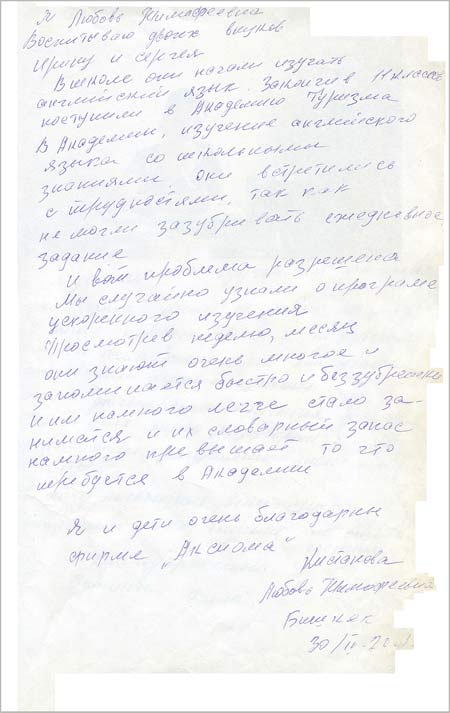 Я Любовь Тимофеевна
Воспитываю двоих внуков
Ирину и Сергея
В школе они начали изучать
английский язык. Закончив 11 классов
поступили в Академию Туризма
В Академии, изучение английского
языка со школьными
знаниями они встретились
с трудностями, так как
не могли зазубривать ежедневное
задание
И вот проблема разрешена
Мы случайно узнали о програме
ускоренного изучения
Просмотрев неделю, месяц
они знают очень многое и
запоминается быстро и без зубрежки
и им намного легче стало за-
ниматся и их словарный запас
намного превышает то что
требуется в Академии
Я и дети очень благодарны
фирме „Аксиома"
Любовь Тимофеевна
Бишкек
30/